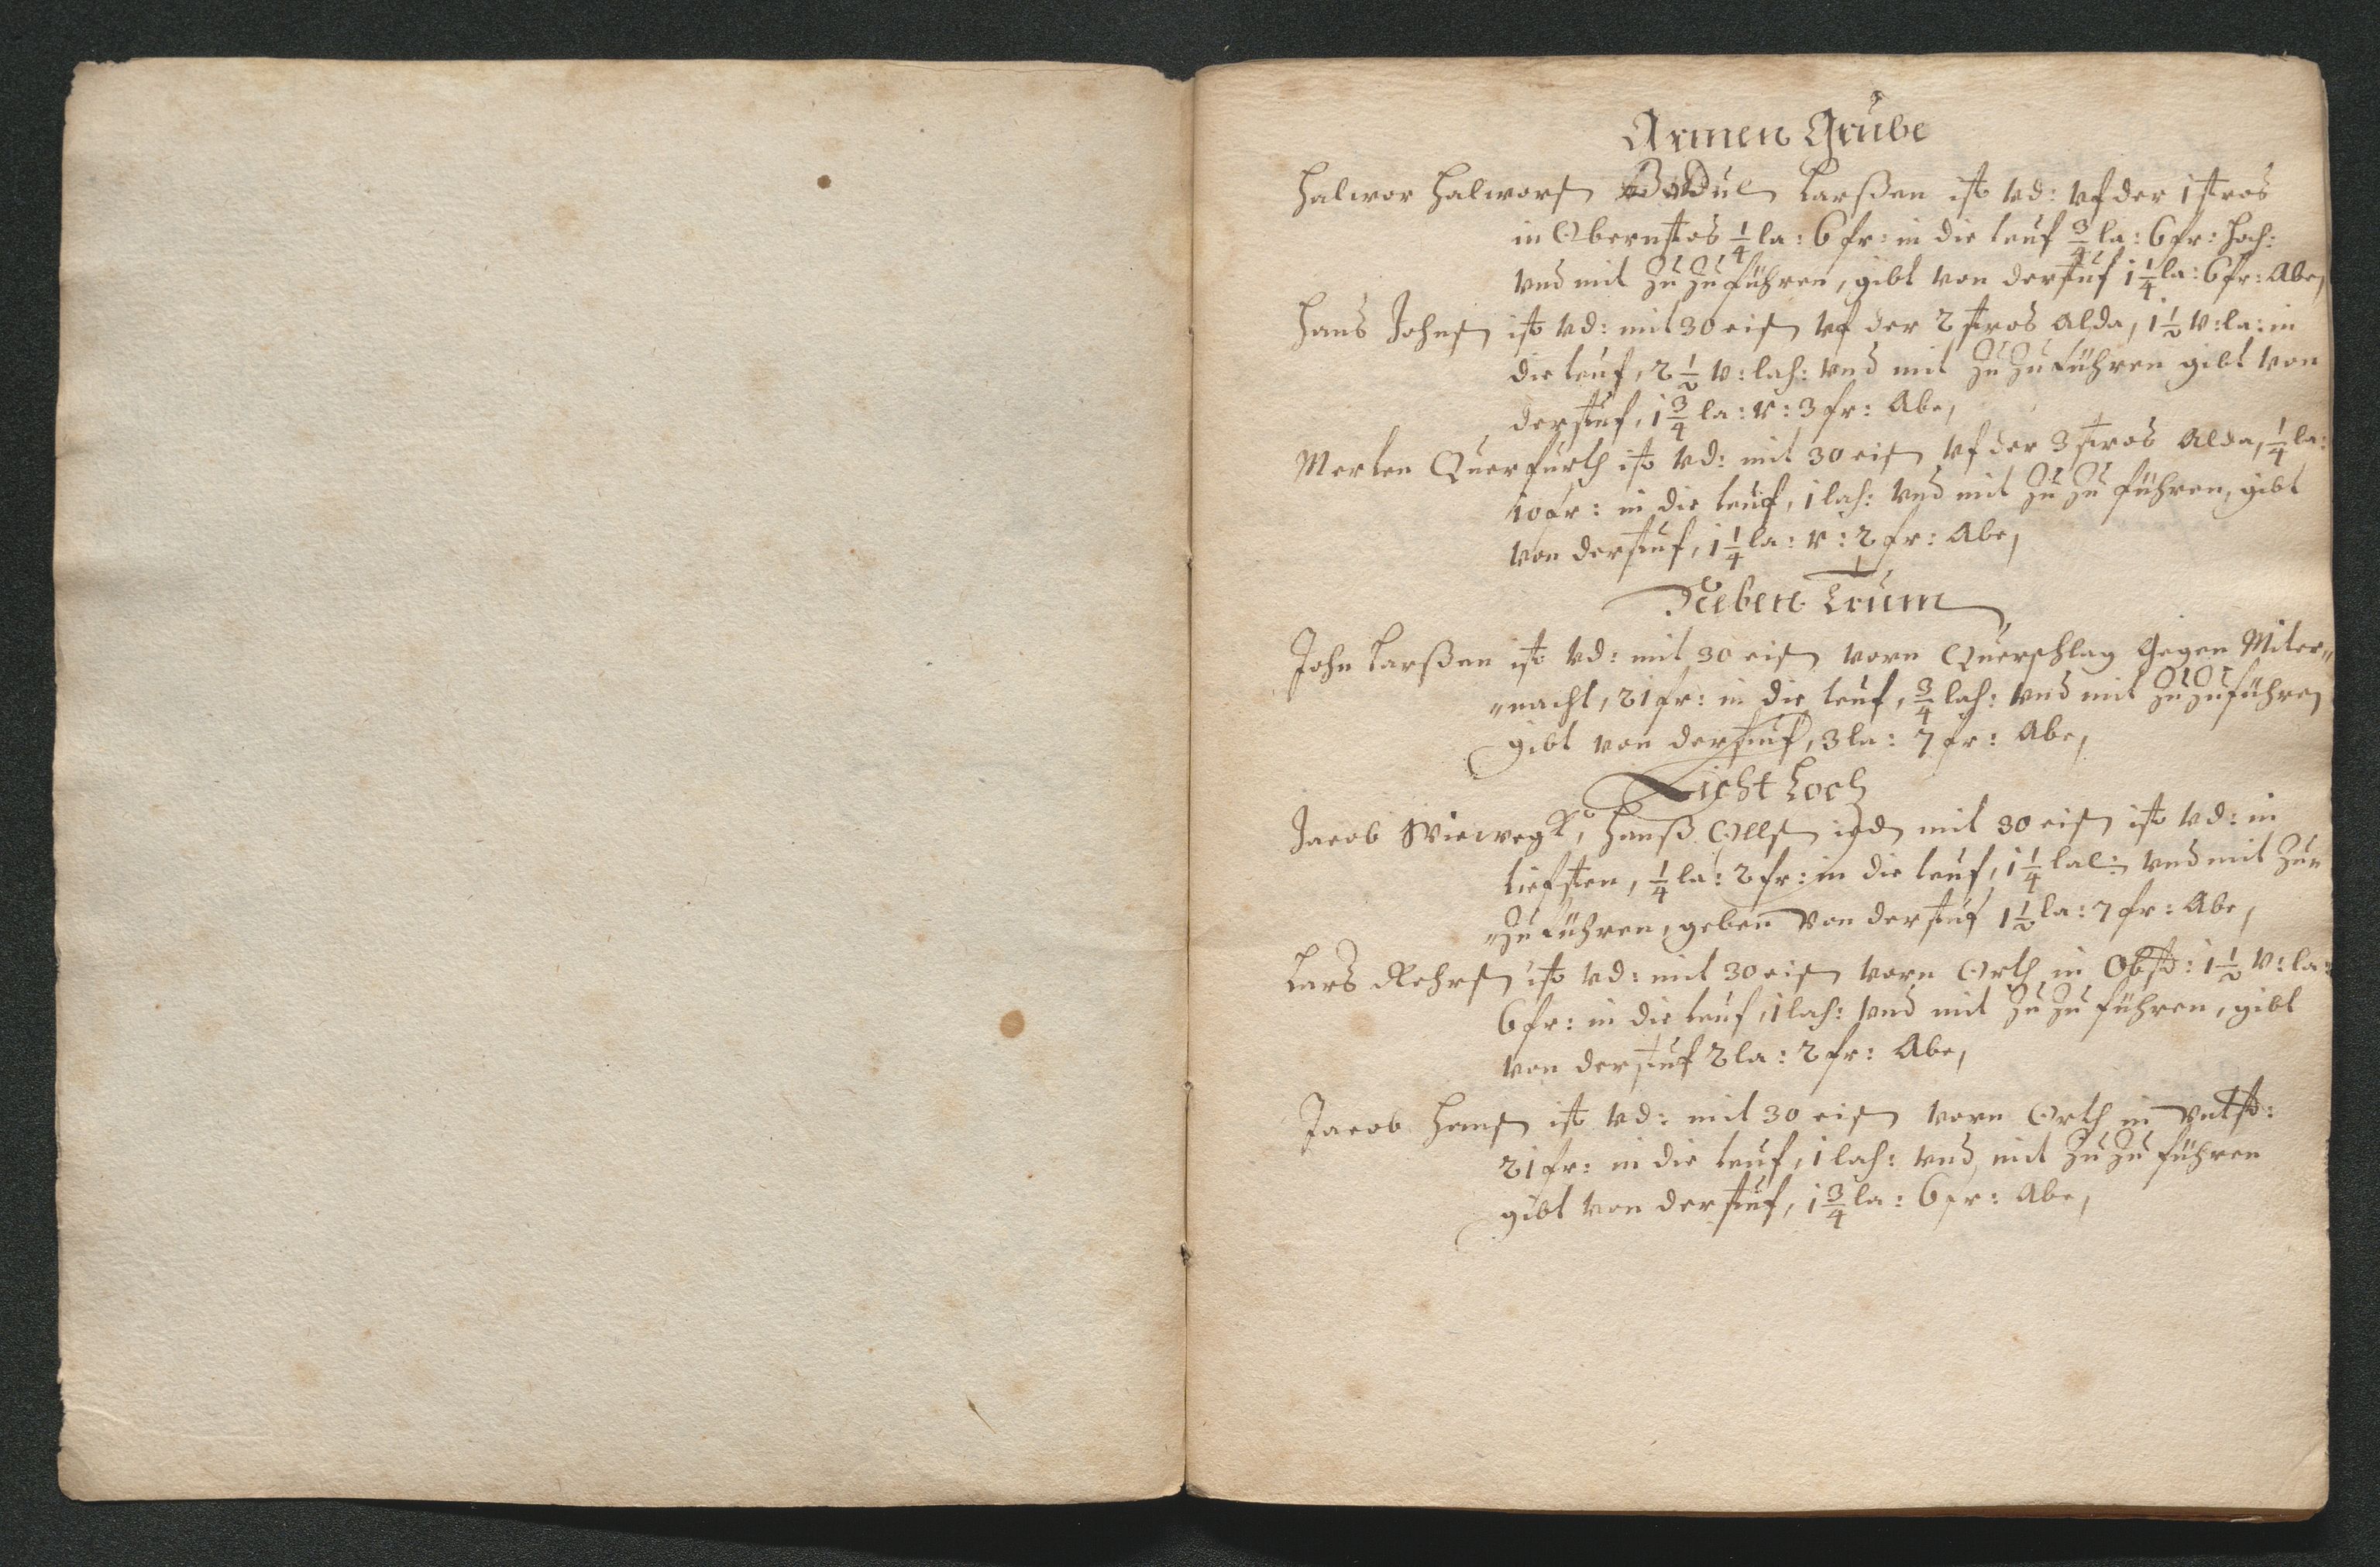 Armen Grube
Halwor Halworsen Bottul Larßen ist vd: vf der 1 stros
in Obernstos 1/4 la: 6 fr: in die teuf 3/4 la: 6 fr: hoch:
vnd mit Zu Zu führen, gibt von der stuf 1 1/4 la: 6 fr: Abe,
Hans Johnsen ist vd: mit 30 eisen vf der 2 stros Alda, 1 1/2 v: la: in
die teuf, 2 1/2 v: lah: vnd mit Zu Zu führen gibt von
der stuf, 1 3/4 la: v: 3 fr: Abe,
Merten Querfurth ist vd: mit 30 eisen vf der 3 stros Alda, 1/4 la:
10 fr: in die teuf, 1 lah: vnd mit Zu Zu führen, gibt
von der stuf, 1 1/4 la: v: 2 fr: Abe,
Neben Trum
John Larßen ist vd: mit 30 eisen vorn Querschlag Gegen Miter„
„nacht, 21 fr: in die teuf, 3/4 lah: vnd mit Zu Zu führen
gibt von der stuf, 3 la: 7 fr: Abe,
Licht Loch
Jacob Viewegk, Hanß Ollsen ied mit 30 eisen ist vd: in
tiefsten, 1/4 la: 2 fr: in die teuf, 1 1/4 lal: vnd mit Zu„
„Zu führen, geben von der stuf 1 1/2 la: 7 fr: Abe,
Lars Rehrsen ist vd: mit 30 eisen vorn Orth in Obst: 1 1/2 v: la:
6 fr: in die teuf, 1 lah: vnd mit Zu Zu führen, gibt
von der stuf 2 la: 2 fr: Abe,
Jacob Hansen ist vd: mit 30 eisen vorn Orth in Vntst:
21 fr: in die teuf, 1 lah: vnd mit Zu Zu führen
gibt von der stuf, 1 3/4 la: 6 fr: Abe,